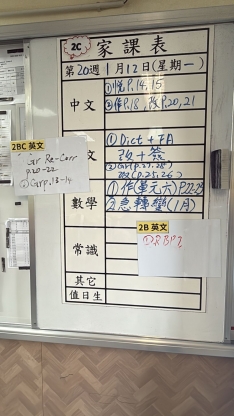 2C 家課表
第20週 1月12日(星期一)
中文
P.14,15
②作P.18, 改P.20,21
文
① Dict + FA
改+簽
② Grp.(27,28)
2BC 英文
Gr Re-Corr
p.20-22
② Grp.13-14
數學
① 作(單元六)
② 急轉彎(1月)
2B 英文
常識
其它
值日生